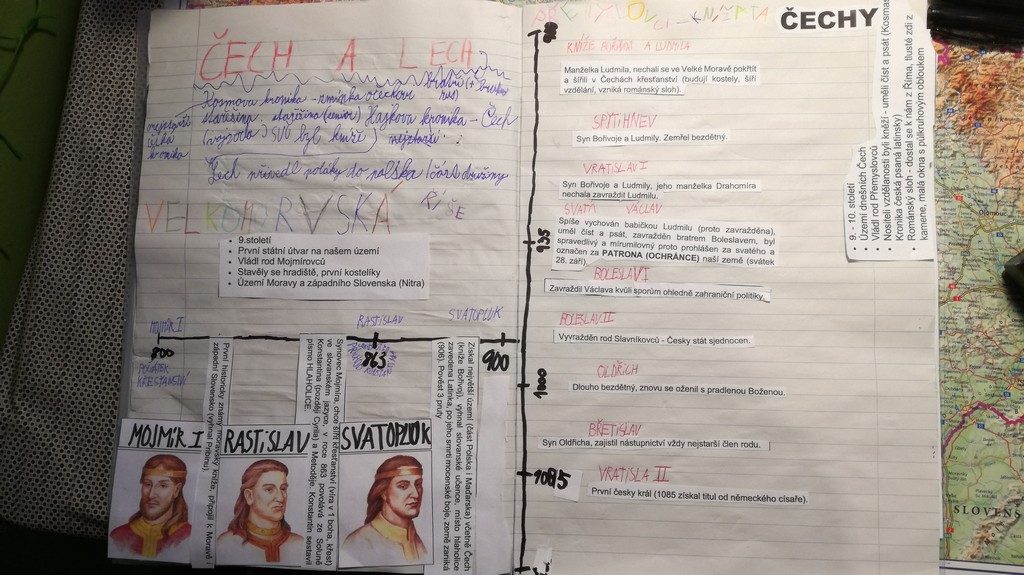 ČECH A LECH
bratři (+ bratr
rus)
Kosmova kronika - zmínka o Čechovi
nejstarší
česká
kronika
stařešina, stařešina (senior) Hájkova kronika - Čech
(vojvoda) SVŮ byl kníže) nejstarší :
Lech přivedl poláky do polska
VELKOMORAVSKÁ
ŘÍŠE
• 9.století
• První státní útvar na našem území
• Vládl rod Mojmírovců
• Stavěly se hradiště, první kostelíky
• Území Moravy a západního Slovenska (Nitra)
MOJMÍR I
RASTISLAV
SVATOPLUK
800
863
900
POČÁTEK
KŘESŤANSTVÍ
První historický známý moravský kníže, připojil k Moravě i
západní Slovensko (vyhnal Pribinu).
Synovec Mojmíra, chce šířit křesťanství (víra v 1 boha, křest)
ve slovanském jazyce, v roce 863 povolává ze Soluně
Konstantina (později Cyrila) a Metoděje. Konstantin sestavil
písmo HLAHOLICE.
Získal největší území (část Polska i Maďarska) včetně Čech
(kníže Bořivoj), vyhnal slovanské učence, místo hlaholice
zavedena Latinka, po jeho smrti mocenské boje, země zaniká
(906). Pověst 3 pruty
MOJMÍR I
RASTISLAV
SVATOPLUK
PŘEMYSLOVCI - KNÍŽATA
ČECHY
KNÍŽE BOŘIVOJ A LUDMILA
Manželka Ludmila, nechali se ve Velké Moravě pokřtít
a šířili v Čechách křesťanství (budují kostely, šíří
vzdělání, vzniká románský sloh).
SPYTIHNEV
Syn Bořivoje a Ludmily. Zemřel bezdětný.
VRATISLAV I
Syn Bořivoje a Ludmily, jeho manželka Drahomíra
nechala zavraždit Ludmilu.
SVATÝ VÁCLAV
Spíše vychován babičkou Ludmilu (proto zavražděna),
uměl číst a psát, zavražděn bratrem Boleslavem, byl
spravedlivý a mírumilovný proto prohlášen za svatého a
označen za PATRONA (OCHRÁNCE) naší země (svátek
28. září).
935
BOLESLAV I
Zavraždil Václava kvůli sporům ohledně zahraniční politiky.
BOLESLAV II
Vyvražděn rod Slavníkovců - Česky stát sjednocen.
OLDŘICH
Dlouho bezdětný, znovu se oženil s pradlenou Boženou.
1000
BŘETISLAV
Syn Oldřicha, zajistil nástupnictví vždy nejstarší člen rodu.
VRATISLA II
1085
První česky král (1085 získal titul od německého císaře).
9. - 10. století
• Území dnešních Čech
• Vládl rod Přemyslovců
• Nositeli vzdělanosti byli kněží - uměli číst a psát (Kosmas
Kronika česká psaná latinsky)
• Románský sloh - dostal se k nám z Říma, tlusté zdi z
kamene, malá okna s půlkruhovým obloukem
Olomouc
SLOVENS